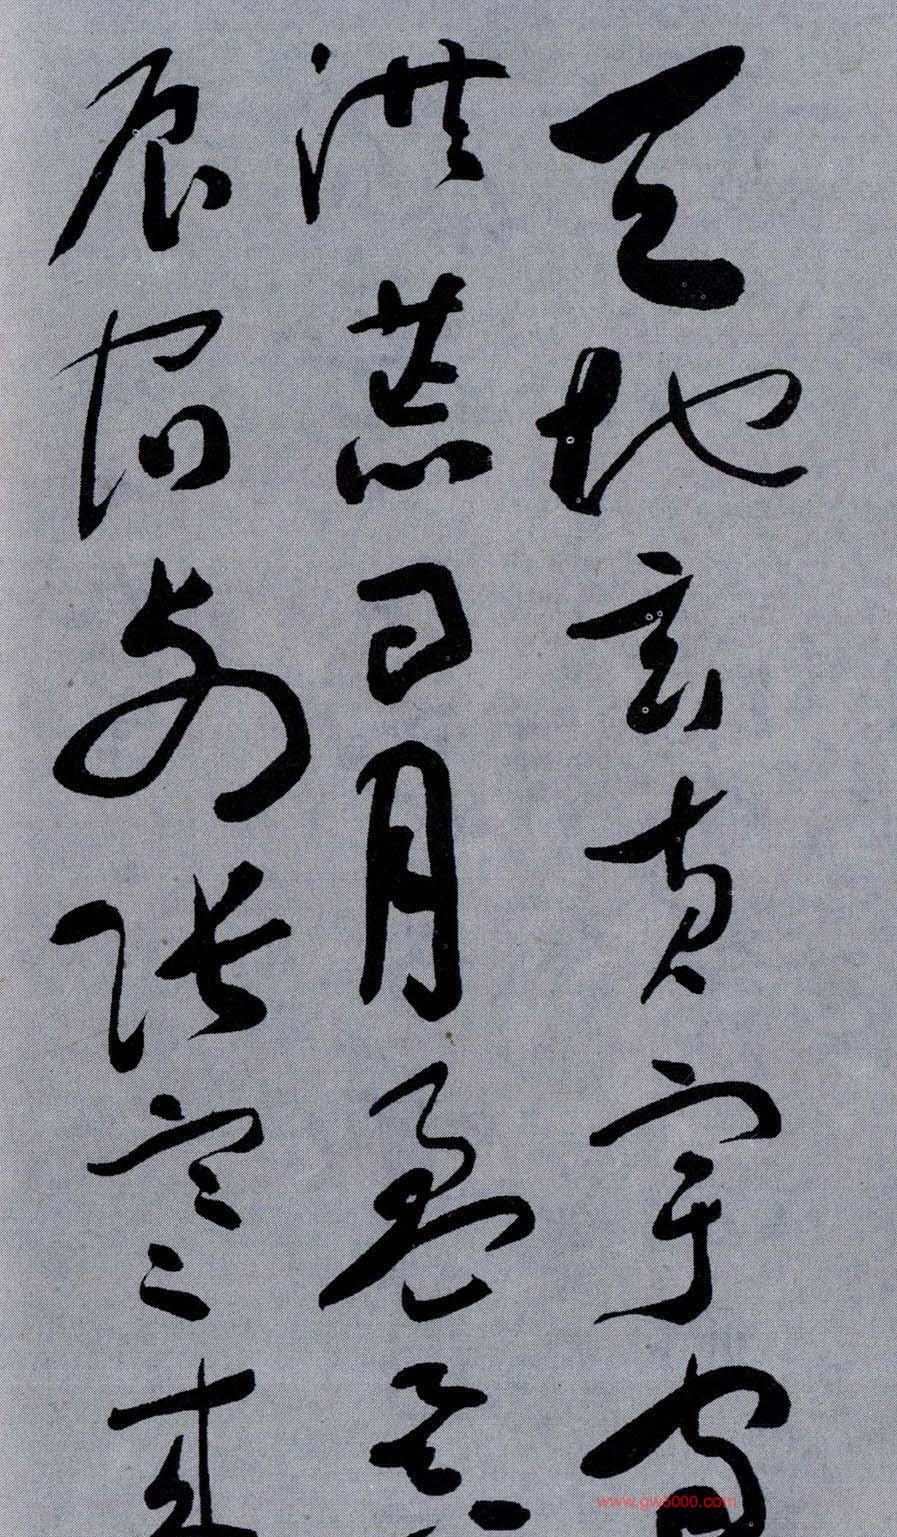 天地玄黄宇宙
洪荒日月盈昃
辰宿列张寒来
www.gw5000.com